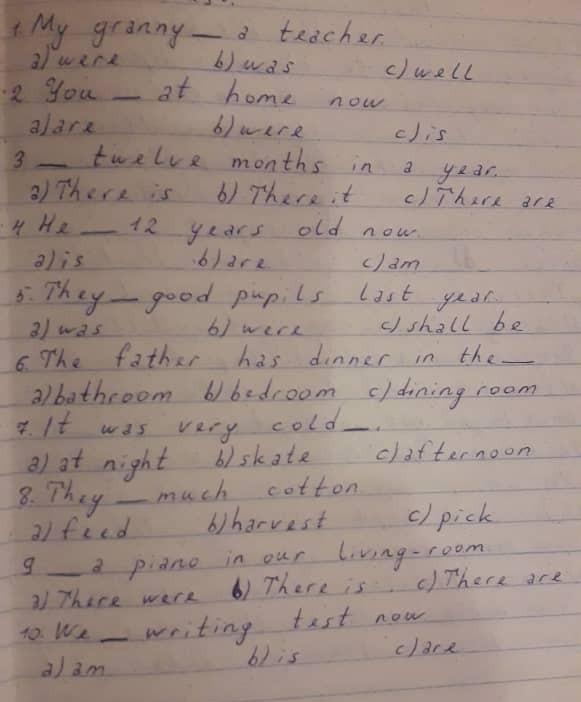 1. My granny _ a teacher.
a) were b) was c) well
2 You _ at home now
a) are b) were c) is
3 _ twelve months in a year.
a) There is b) There it c) There are
4 He _ 12 years old now.
a) is b) are c) am
5. They _ good pupils last year.
a) was b) were c) shall be
6. The father has dinner in the _
a) bathroom b) bedroom c) dining room
7. It was very cold _.
a) at night b) skate c) afternoon
8. They _ much cotton
a) feed b) harvest c) pick
9 _ a piano in our living-room.
a) There were b) There is. c) There are
10. We _ writing test now
a) am b) is c) are